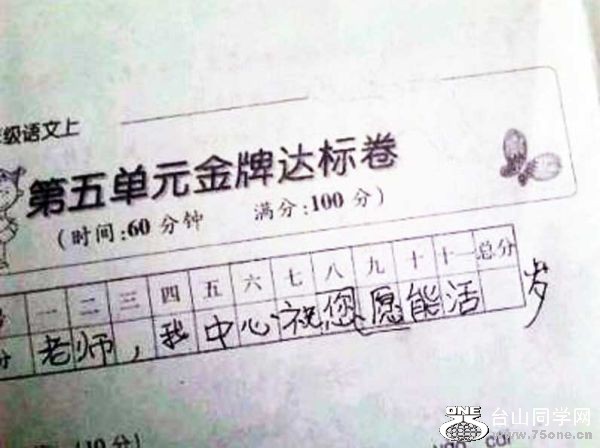 级语文上
第五单元金牌达标卷
(时间:60 分钟 满分:100 分)
一 二 三 四 五 六 七 八 九 十 十一 总分
分 老师，我中心祝您愿能活 岁
(10 分)
ONE
台山同学网
www.75one.cn